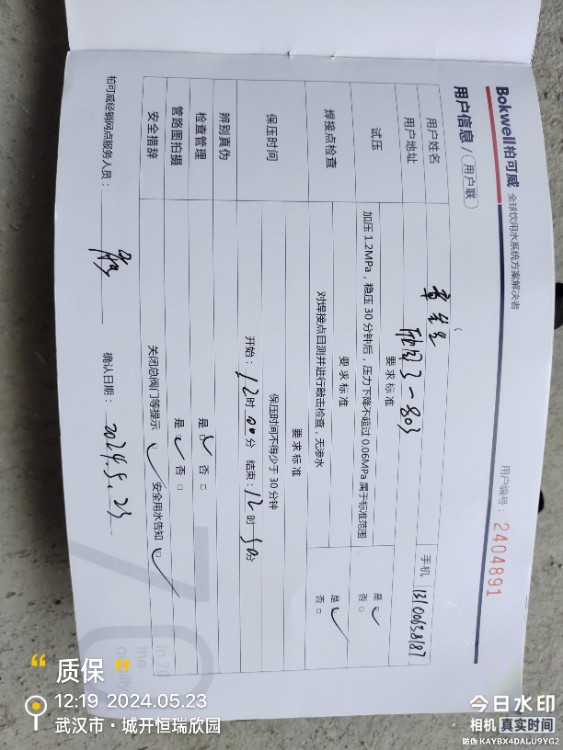 Bokwell柏可威 全球饮用水系统方案解决者
用户编号: 2404891
用户信息 / 用户联
用户姓名
手机 13100638187
用户地址 3-803
试压
要求标准
加压 1.2MPa，稳压 30 分钟后，压力下降不超过 0.06MPa 属于标准范围
是 ✓
否 □
焊接点检查
要求标准
对焊接点目测并进行敲击检查，无渗水
是 ✓
否 □
保压时间
要求标准
保压时间不得少于 30 分钟
开始: 12 时 00 分 结束: 12 时 50 分
辨别真伪
检查管理
是 ✓ 否 □
管路图拍摄
是 ✓ 否 □
安全措辞
关闭总阀门等提示 ✓ 安全用水告知 ✓
柏可威经销网点服务人员:
确认日期: 2024.5.23
in 70
the
“ 质保 ”
12:19 2024.05.23
武汉市·城开恒瑞欣园
今日水印
相机 真实时间
防伪 KAYBX4DALU9YG2